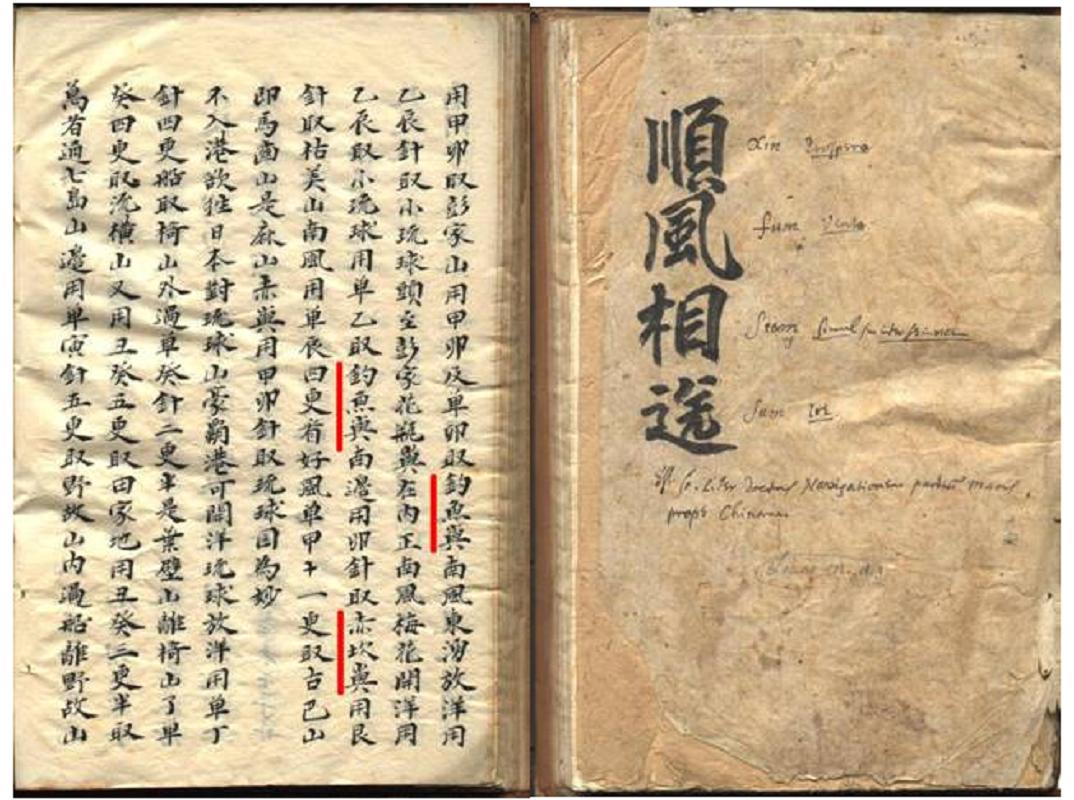 順風相送
Xin prospero
fum vento
Seam
Sum
Navigationem
prope Chinam
用甲卯取彭家山用甲卯及单卯取釣魚嶼南風東湧放洋用
乙辰針取小琉球頭至彭家花瓶嶼在内正南風梅花開洋用
乙辰取小琉球用单乙取釣魚嶼南邊用卯針取赤坎嶼用艮
針取枯美山南風用单辰四更看好風单甲十一更取古巴山
即馬齒山是麻山赤嶼用甲卯針取琉球国為妙
不入港欲往日本對琉球山豪霸港可開洋琉球放洋用单丁
針四更船取椅山外過单癸針二更半是葉壁山離椅山了单
癸四更取流横山又用丑癸五更取田家地用丑癸三更半取
萬者通七島山邊用单寅針五更取野故山内過船離野故山